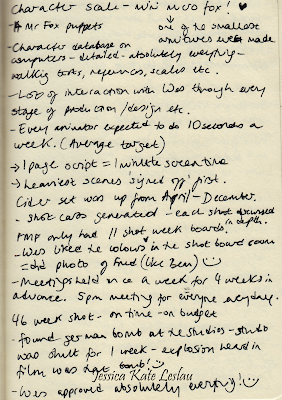 Character scale - mini micro fox! ♥
- 4 Mr Fox puppets
one of the smallest
armatures ever made
- Character database on
computers - detailed - absolutely everything -
walking tests, references, scales etc.
- Lots of interaction with Wes through every
stage of production/design etc.
- Every animator expected to do 10 seconds a
week. (Average target)
→ 1 page script = 1 minute screentime
→ heaviest scenes 'signed off' first.
Cider set was up from April - December.
- shot cards generated - each shot discussed
in depth.
FMP only had 11 shot week boards!
- Wes liked the colours in the shot board room
= did photo of Fred (like Ben) ☺
- Meetings held once a week for 4 weeks in
advance. 5pm meeting for everyone everyday.
46 week shoot - on time - on budget
- found german bomb at the studios - studio
was shut for 1 week - explosion heard in
film was that bomb! ☺
Jessica Kate Leslau
- Wes approved absolutely everything! ☺